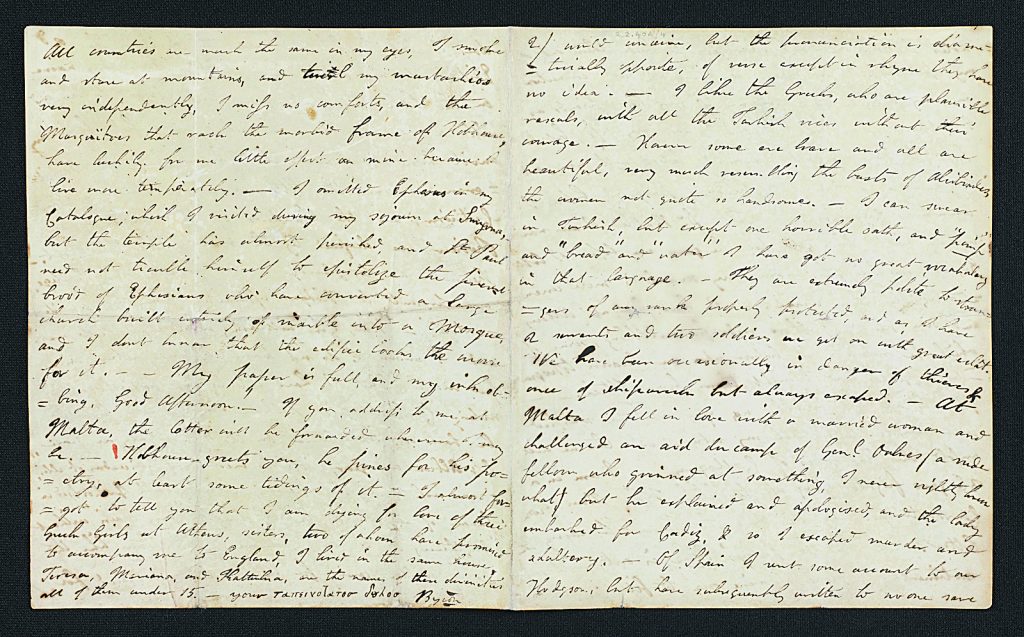 All countries are much the same in my eyes, I smoke
and stare at mountains, and twirl my mustachios
very independently, I miss no comforts, and the
Musquitoes that rack the morbid frame of Hobhouse,
have luckily for me little effect on mine because I
live more temperately. — I omitted Ephesus in my
Catalogue, which I visited during my sojourn at Smyrna,
but the temple has almost perished, and St. Paul
need not trouble himself to epistolize the present
brood of Ephesians who have converted a large
church built entirely of marble into a Mosque,
and I dont know that the edifice looks the worse
for it. — — My paper is full and my ink eb-
=bing, Good Afternoon. — If you address to me at
Malta, the letter will be forwarded wherever I may
be. — Hobhouse greets you, he pines for his po-
=etry, at least some tidings of it — I almost for-
=got to tell you that I am dying for love of three
Greek Girls at Athens, sisters, two of whom have promised
to accompany me to England, I lived in the same house,
Teresa, Mariana, and Kattinka, are the names of these divinities
all of them under 15. — your ταπεινοτατοσ δουλοσ Byron
2.2.404/4
2) could imagine, but the pronunciation is diame-
=trically opposite, of verse except in rhyme they have
no idea. — I like the Greeks, who are plausible
rascals, with all the Turkish vices without their
courage. — However some are brave and all are
beautiful, very much resembling the busts of Alcibiades,
the women not quite so handsome. — I can swear
in Turkish, but except one horrible oath, and "pimp"
and "bread" and "water" I have got no great vocabulary
in that language. — They are extremely polite to stran-
=gers of any rank properly protected, and as I have
2 servants and two soldiers we get on with great eclat.
We have been occasionally in danger of thieves &
once of shipwreck but always escaped. — At
Malta I fell in love with a married woman and
challenged an aid du camp of Genl. Oakes (a rude
fellow who grinned at something, I never rightly knew
what,) but he explained and apologised, and the lady
embarked for Cadiz, & so I escaped murder and
adultery. — Of Spain I sent some account to our
Hodgson, but have subsequently written to no one save